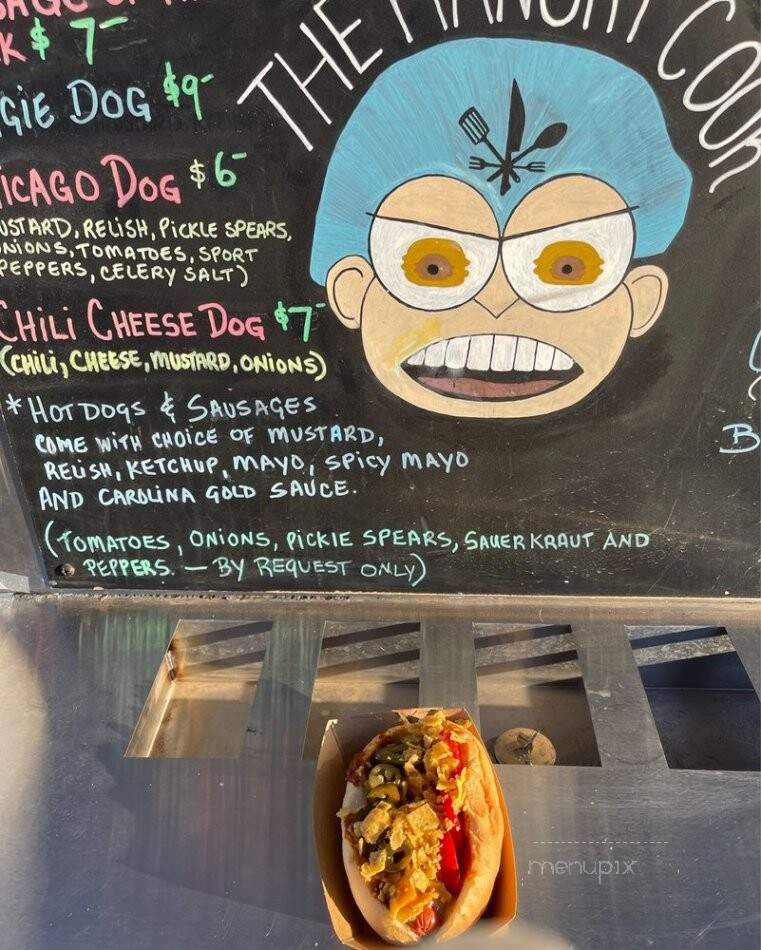 K $7-
GIE DOG $9-
ICAGO DOG $6-
USTARD, RELISH, PICKLE SPEARS,
NIONS, TOMATOES, SPORT
PEPPERS, CELERY SALT)
CHILI CHEESE DOG $7-
(CHILI, CHEESE, MUSTARD, ONIONS)
* HOT DOGS & SAUSAGES
COME WITH CHOICE OF MUSTARD,
RELISH, KETCHUP, MAYO, SPICY MAYO
AND CAROLINA GOLD SAUCE.
(TOMATOES, ONIONS, PICKIE SPEARS, SAUERKRAUT AND
PEPPERS. — BY REQUEST ONLY)
THE HANGRY COOK
B
menupix